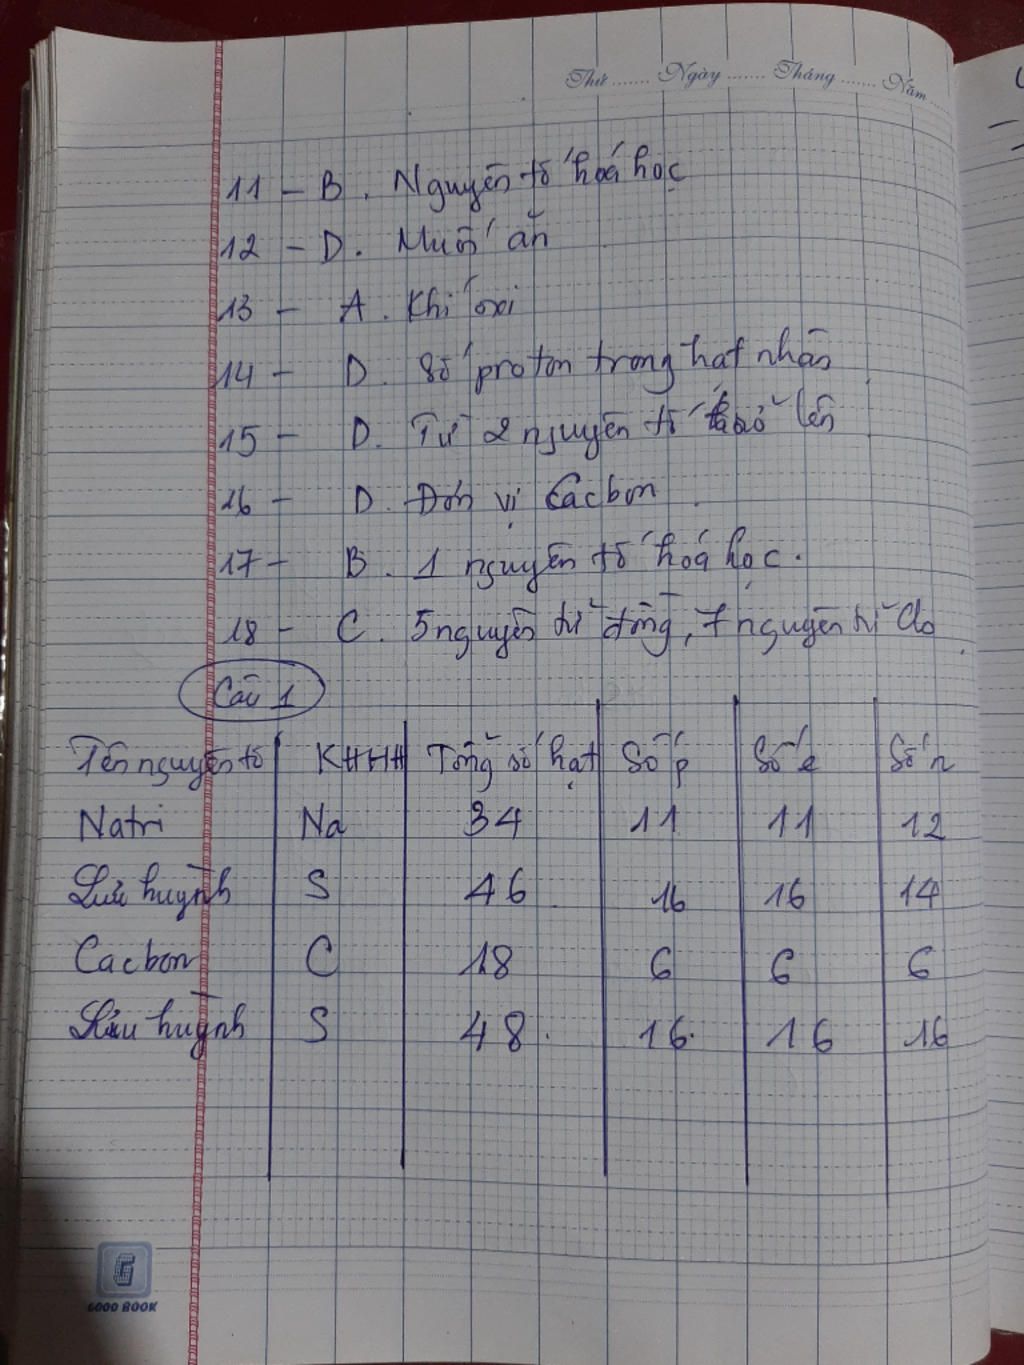 Thứ ....... Ngày ....... Tháng ....... Năm .....
11 - B . Nguyên tố hoá học
12 - D. Muối ăn
13 - A . Khí oxi
14 - D. Số proton trong hạt nhân
15 - D. Từ 2 nguyên tố trở lên
16 - D. Đơn vị Cacbon
17 - B . 1 nguyên tố hoá học.
18 - C. 5 nguyên tử đồng, 7 nguyên tử Clo
Câu 1
Tên nguyên tố KHHH Tổng số hạt Số p Số e Số n
Natri Na 34 11 11 12
Lưu huỳnh S 46 16 16 14
Cacbon C 18 6 6 6
Lưu huỳnh S 48 16 16 16
G
GOOD BOOK